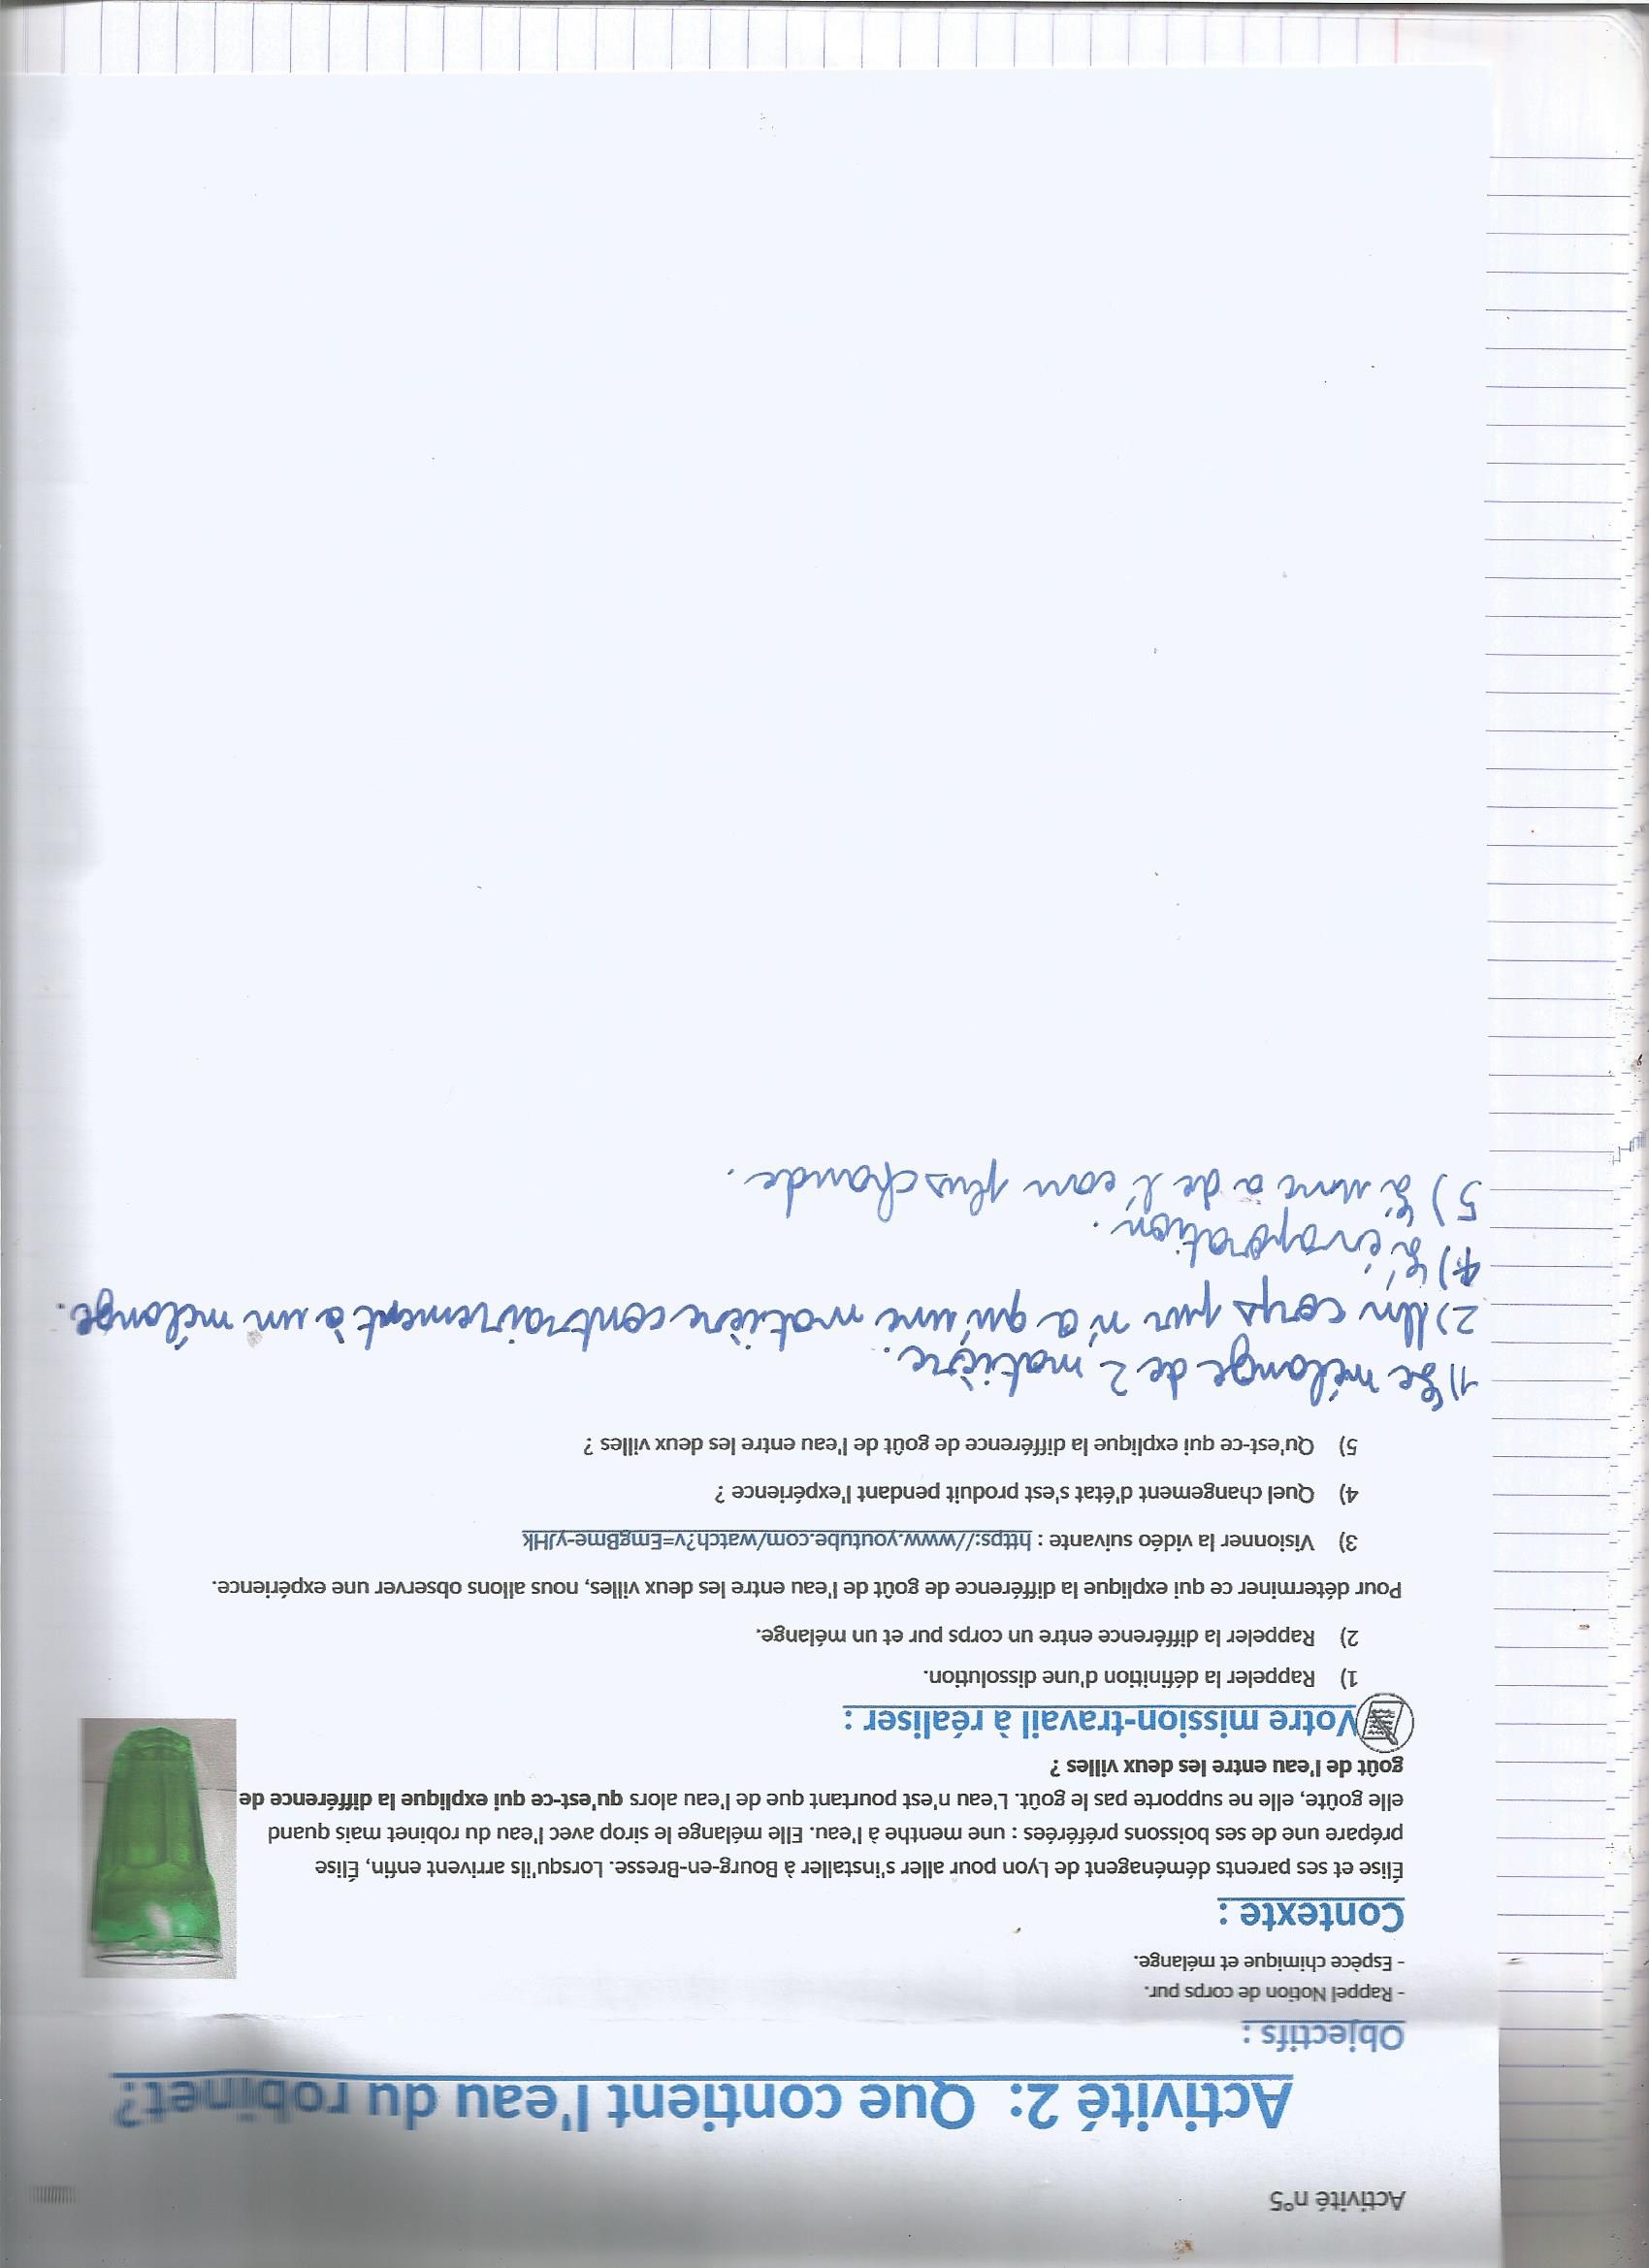 Activité n°5
Activité 2: Que contient l'eau du robinet?
Objectifs :
- Rappel Notion de corps pur.
- Espèce chimique et mélange.
Contexte :
Élise et ses parents déménagent de Lyon pour aller s'installer à Bourg-en-Bresse. Lorsqu'ils arrivent enfin, Élise
prépare une de ses boissons préférées : une menthe à l'eau. Elle mélange le sirop avec l'eau du robinet mais quand
elle goûte, elle ne supporte pas le goût. L'eau n'est pourtant que de l'eau alors qu'est-ce qui explique la différence de
goût de l'eau entre les deux villes ?
Votre mission-travail à réaliser :
1) Rappeler la définition d'une dissolution.
2) Rappeler la différence entre un corps pur et un mélange.
Pour déterminer ce qui explique la différence de goût de l'eau entre les deux villes, nous allons observer une expérience.
3) Visionner la vidéo suivante : https://www.youtube.com/watch?v=EmgBme-yJHk
4) Quel changement d'état s'est produit pendant l'expérience ?
5) Qu'est-ce qui explique la différence de goût de l'eau entre les deux villes ?
1) Le mélange de 2 matière.
2) Un corps pur n'a qu'une matière contrairement à un mélange.
4) L'évaporation.
5) L'une a de l'eau plus chaude.